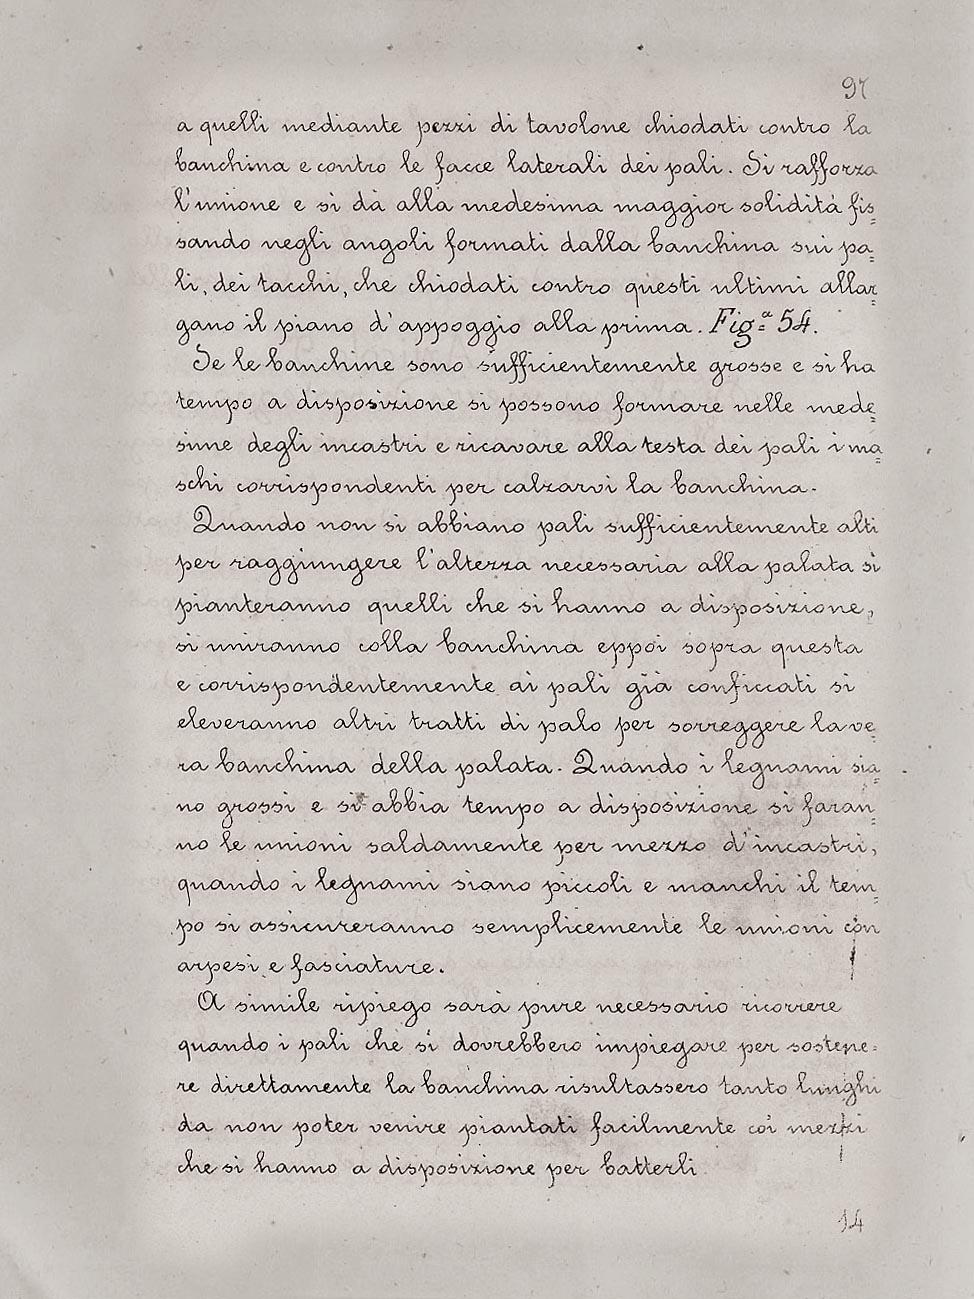 97
a quelli mediante pezzi di tavolone chiodati contro la
banchina e contro le facce laterali dei pali. Si rafforza
l'unione e si dà alla medesima maggior solidità fis=
sando negli angoli formati dalla banchina sui pa=
li, dei tacchi, che chiodati contro questi ultimi allar=
gano il piano d'appoggio alla prima. Figª 54.
Se le banchine sono sufficientemente grosse e si ha
tempo a disposizione si possono formare nelle mede=
sime degli incastri e ricavare alla testa dei pali i ma=
schi corrispondenti per calzarvi la banchina.
Quando non si abbiano pali sufficientemente alti
per raggiungere l'altezza necessaria alla palata si
pianteranno quelli che si hanno a disposizione,
si uniranno colla banchina eppoi sopra questa
e corrispondentemente ai pali già conficcati si
eleveranno altri tratti di palo per sorreggere la ve=
ra banchina della palata. Quando i legnami sia=
no grossi e si abbia tempo a disposizione si faran=
no le unioni saldamente per mezzo d'incastri,
quando i legnami siano piccoli e manchi il tem=
po si assicureranno semplicemente le unioni con
arpesi e fasciature.
A simile ripiego sarà pure necessario ricorrere
quando i pali che si dovrebbero impiegare per sostene=
re direttamente la banchina risultassero tanto lunghi
da non poter venire piantati facilmente coi mezzi
che si hanno a disposizione per batterli
14